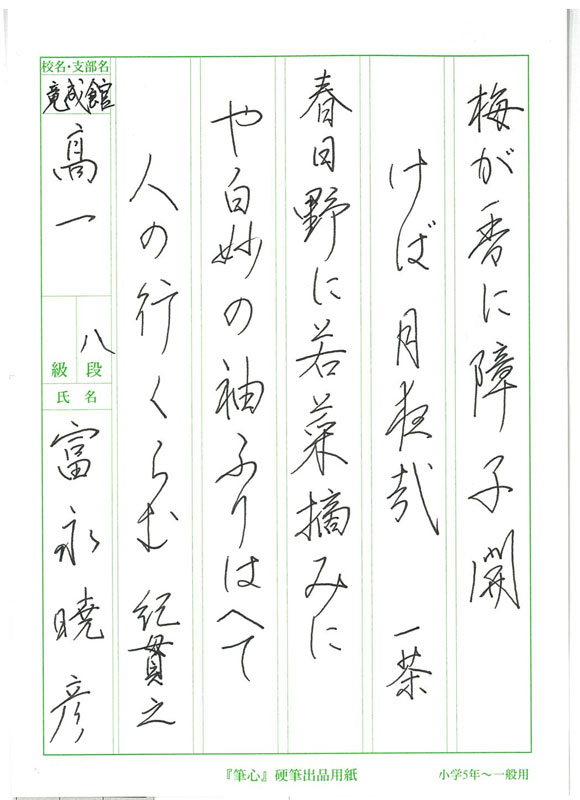 梅が香に障子開
けば月夜哉 一茶
春日野に若菜摘みに
や白妙の袖ふりはへて
人の行くらむ 紀貫之
校名・支部名
竟成館
高一
八段
級
氏名
富永暁彦
『筆心』硬筆出品用紙
小学5年〜一般用